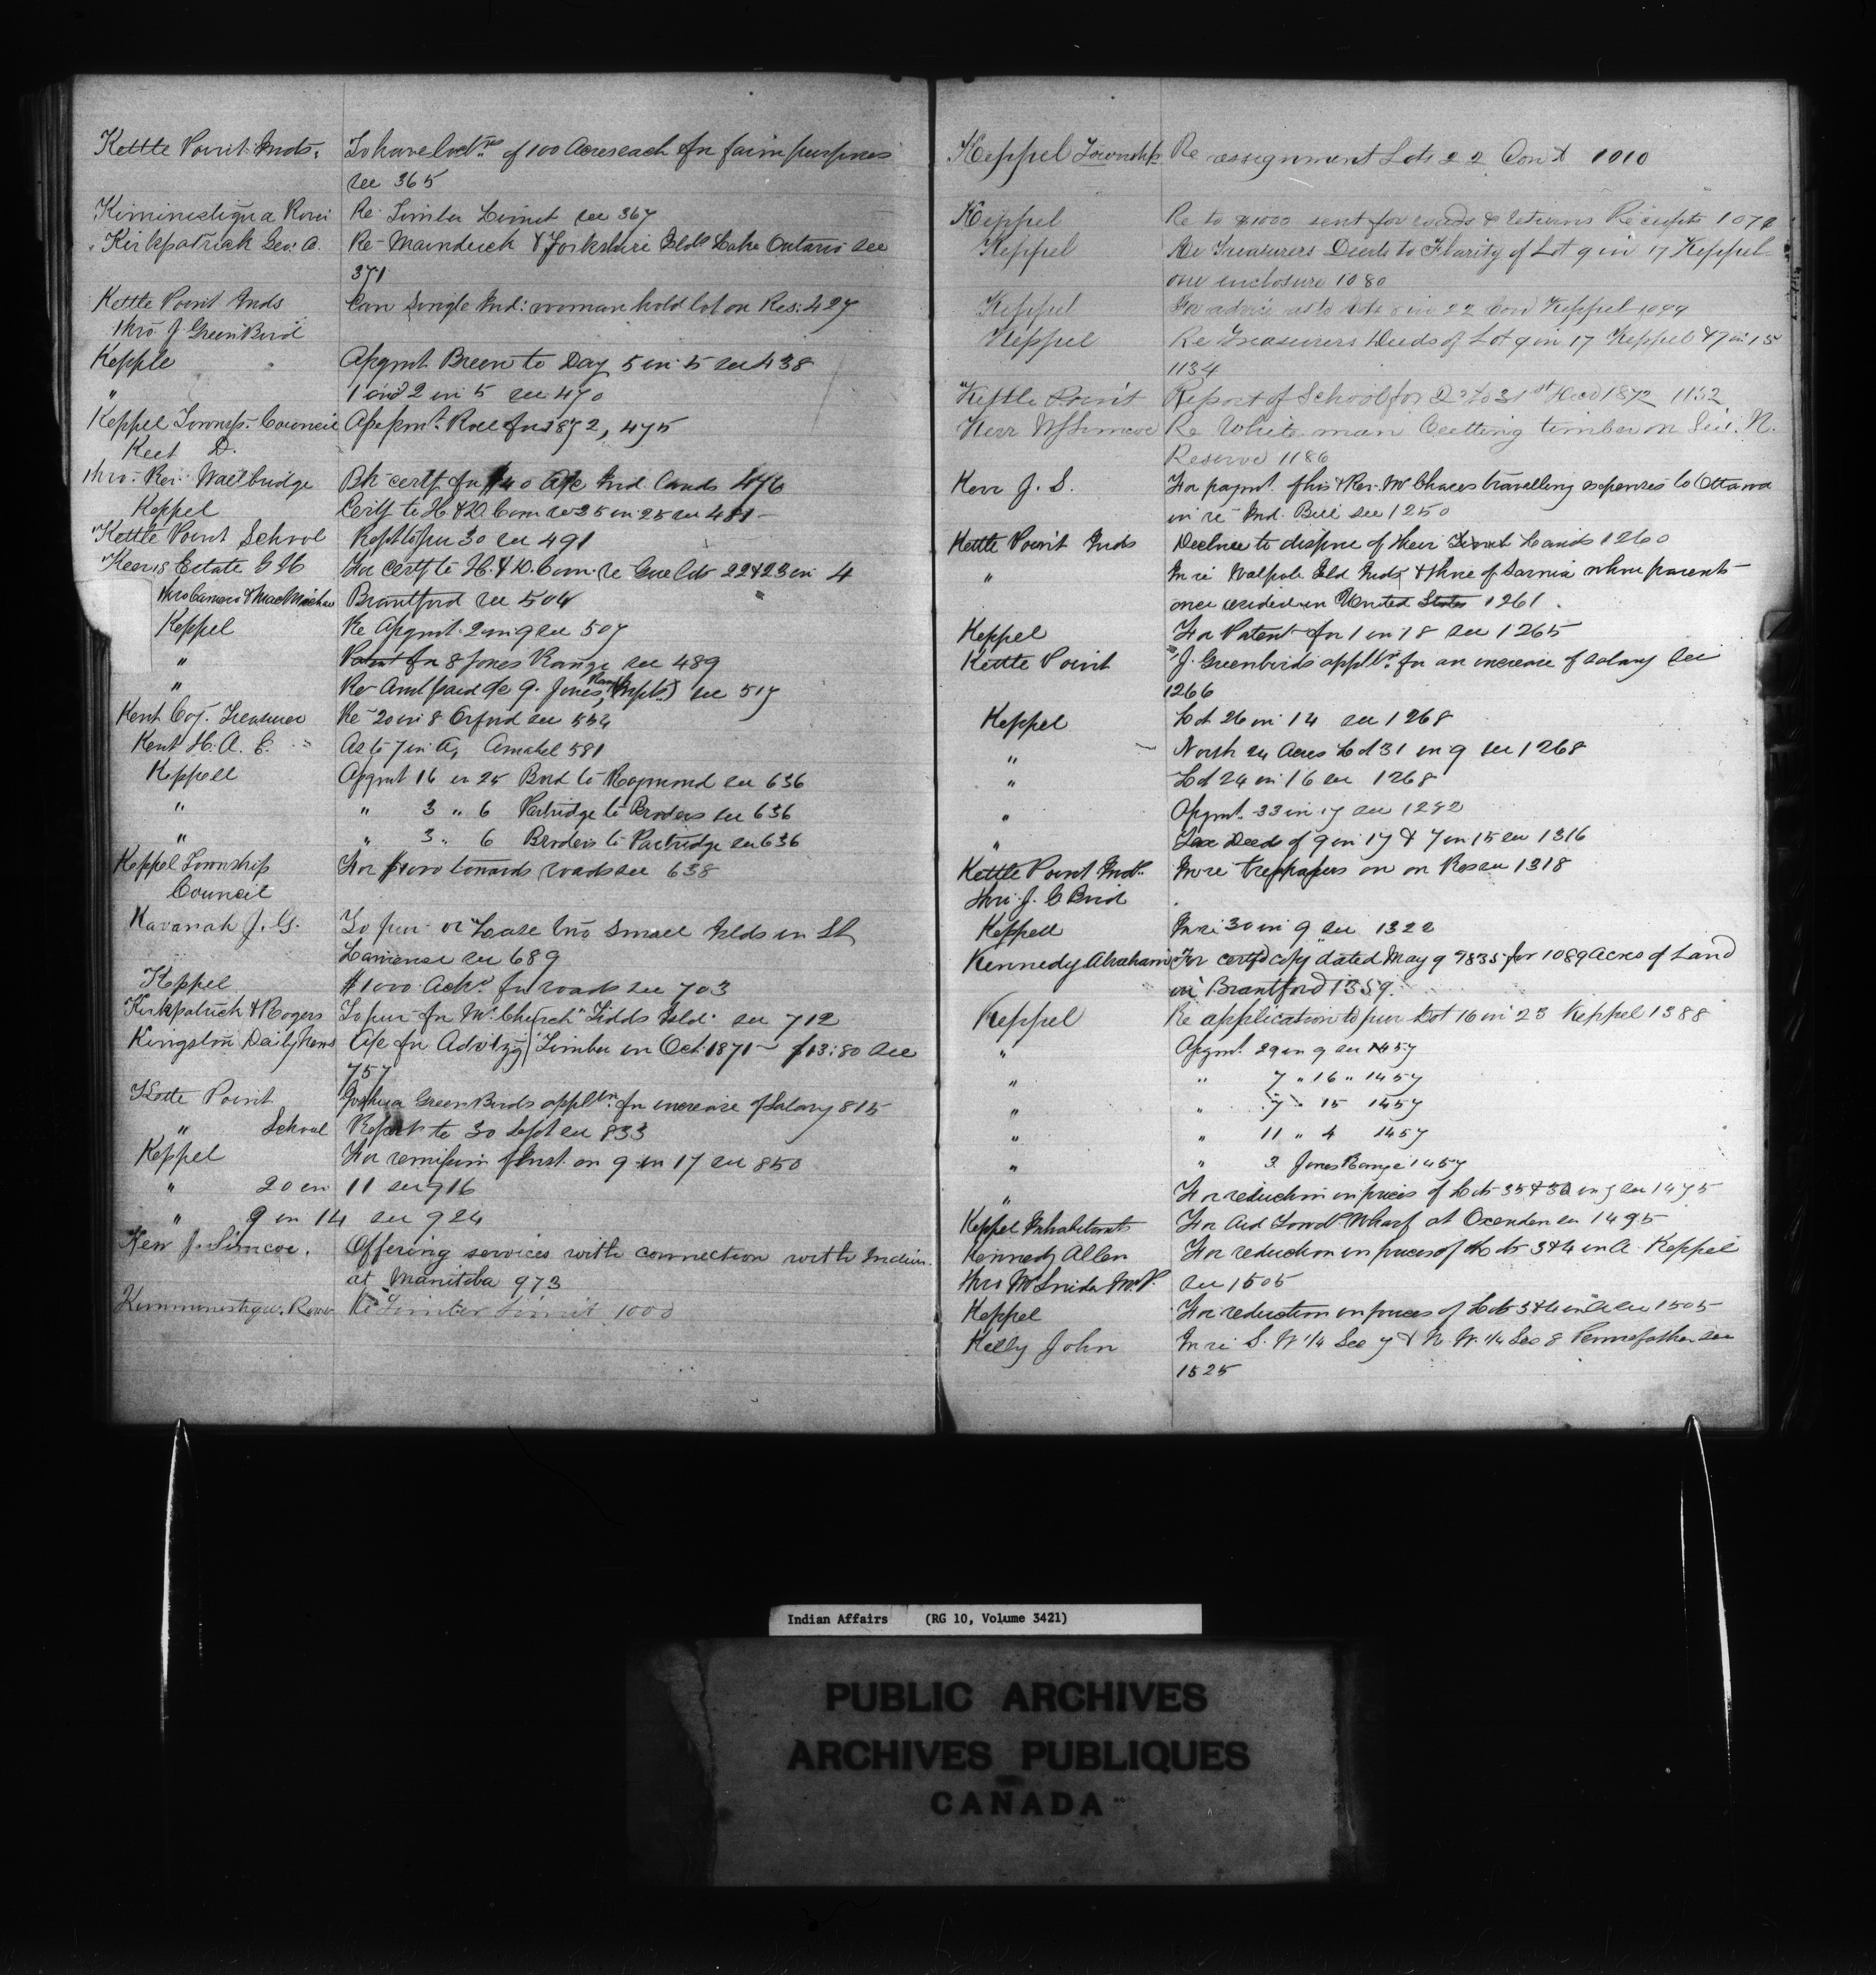 Kettle Point Inds. To have loct.ns of 100 Acres each for farm purposes
see 365
Kiministiqua River Re Timber Limit see 367
Kirkpatrick Geo: A. Re Mainduck & Yorkshire Islds Lake Ontario see
371
Kettle Point Inds Can single Ind: woman hold lot on Res: 427
thro J Green Bird
Kepple Asgnmt Breen to Day 5 in 5 see 438
" 1 and 2 in 5 see 470
Keppel Townsp. Council Roll for 1872, 475
Keet D.
thro. Rev. Wallbridge Bk certf for $40 A/c Ind. Lands 476
Keppel Certf to H & D. Com re 25 in 25 see 481
Kettle Point School Rept to 30 see 491
Keer's Estate G H For certf to H. & D. Com. re Lots 22 & 23 in 4
thro Cameron & MacMichael Brantford see 504
Keppel Re Asgmt. 2 in 9 see 507
" Patent for 8 Jones Range see 489
" Re Amt paid 9. Jones Range see 517
Kent Coy. Treasurer Re 20 in 8 Orford see 554
Kent H. A. E. As to 7 in A, Amabel 581
Keppell Asgmt 16 in 25 Bond to Raymond see 636
" " 3 " 6 Partridge to Broders see 636
" " 3 " 6 Broders to Partridge see 636
Keppel Township For $1000 towards roads see 638
Council
Kavanah J. G. To pur or Lease two small Islds in St
Lawrence see 689
Keppel $1000 Ackd for roads see 703
Kirkpatrick & Rogers To pur for Mr. Church "Tidds Isld" see 712
Kingston Daily News A/c for Advtzg Timber in Oct. 1871 $13:80 see
757
Kette Point Joshua Green Birds applt.n for increase of Salary 815
" School Report to 30 Sept see 833
Keppel For remission of Inst. on 9 in 17 see 850
" 20 in 11 see 916
" 9 in 14 see 924
Kerr J. Simcoe. Offering services with connection with Indians
at Manitoba 973
River Re Timber Limit 1000
Keppel Township Re assignment Lots 22 Con X 1010
Keppel Re to $1000 sent for roads & returns Receipts 1072
Keppel Re Treasurers Deeds to Flarity of Lot 9 in 17 Keppel
one enclosure 1080
Keppel For advice as to Lots in 22 Con Keppel 1099
Keppel Re Treasurers Deeds of Lot 9 in 17 Keppel & 7 in 15
1134
Kettle Point Report of School for to 31st Decd 1872 1152
Kerr W J Simcoe Re White man Cutting timber on Six. N.
Reserve 1186
Kerr J. S. For paymt. of his & Rev. Mr Chaces travelling expenses to Ottawa
in re Ind. Bill see 1250
Kettle Point Inds Decline to dispose of their Lands 1260
" In re Walpole Isld Inds & those of Sarnia whose parents
once resided in United States 1261.
Keppel For Patent for 1 in 18 see 1265
Kettle Point J. Greenbirds applt.n for an increase of salary see
1266
Keppel Lot 26 in 14 see 1268
" North 24 Acres Lot 31 in 9 see 1268
" Lot 24 in 16 see 1268
" Asgmt. 33 in 17 see 1292
" Tax Deeds of 9 in 17 & 7 in 15 see 1316
Kettle Point Inds In re trespassers on on Res see 1318
thro J. G Bird
Keppell In re 30 in 9 see 1322
Kennedy Abraham For certfd copy dated May 9 1835 for 1089 Acres of Land
in Brantford 1359.
Keppel Re application to pur Lot 16 in 23 Keppel 1388
" Asgmt. 29 in 9 see 1457
" " 7 " 16 " 1457
" " 7 " 15 1457
" " 11 " 4 1457
" " 3 Jones Range 1457
" For reduction in prices of Lots 35 & 36 in 7 see 1475
Keppel Inhabitants For Aid Towds Wharf at Oxenden see 1495
Kennedy Allen For reduction in prices of Lots 3 & 4 in A Keppel
thro Mr Snider M.P. see 1505
Keppel For reduction in prices of Lots 3 & 4 in A see 1505
Kelly John In re S. W 1/4 Sec 7 & N. W. 1/4 Sec 8 Pennefather see
1525
Indian Affairs (RG 10, Volume 3421)
PUBLIC ARCHIVES
ARCHIVES PUBLIQUES
CANADA